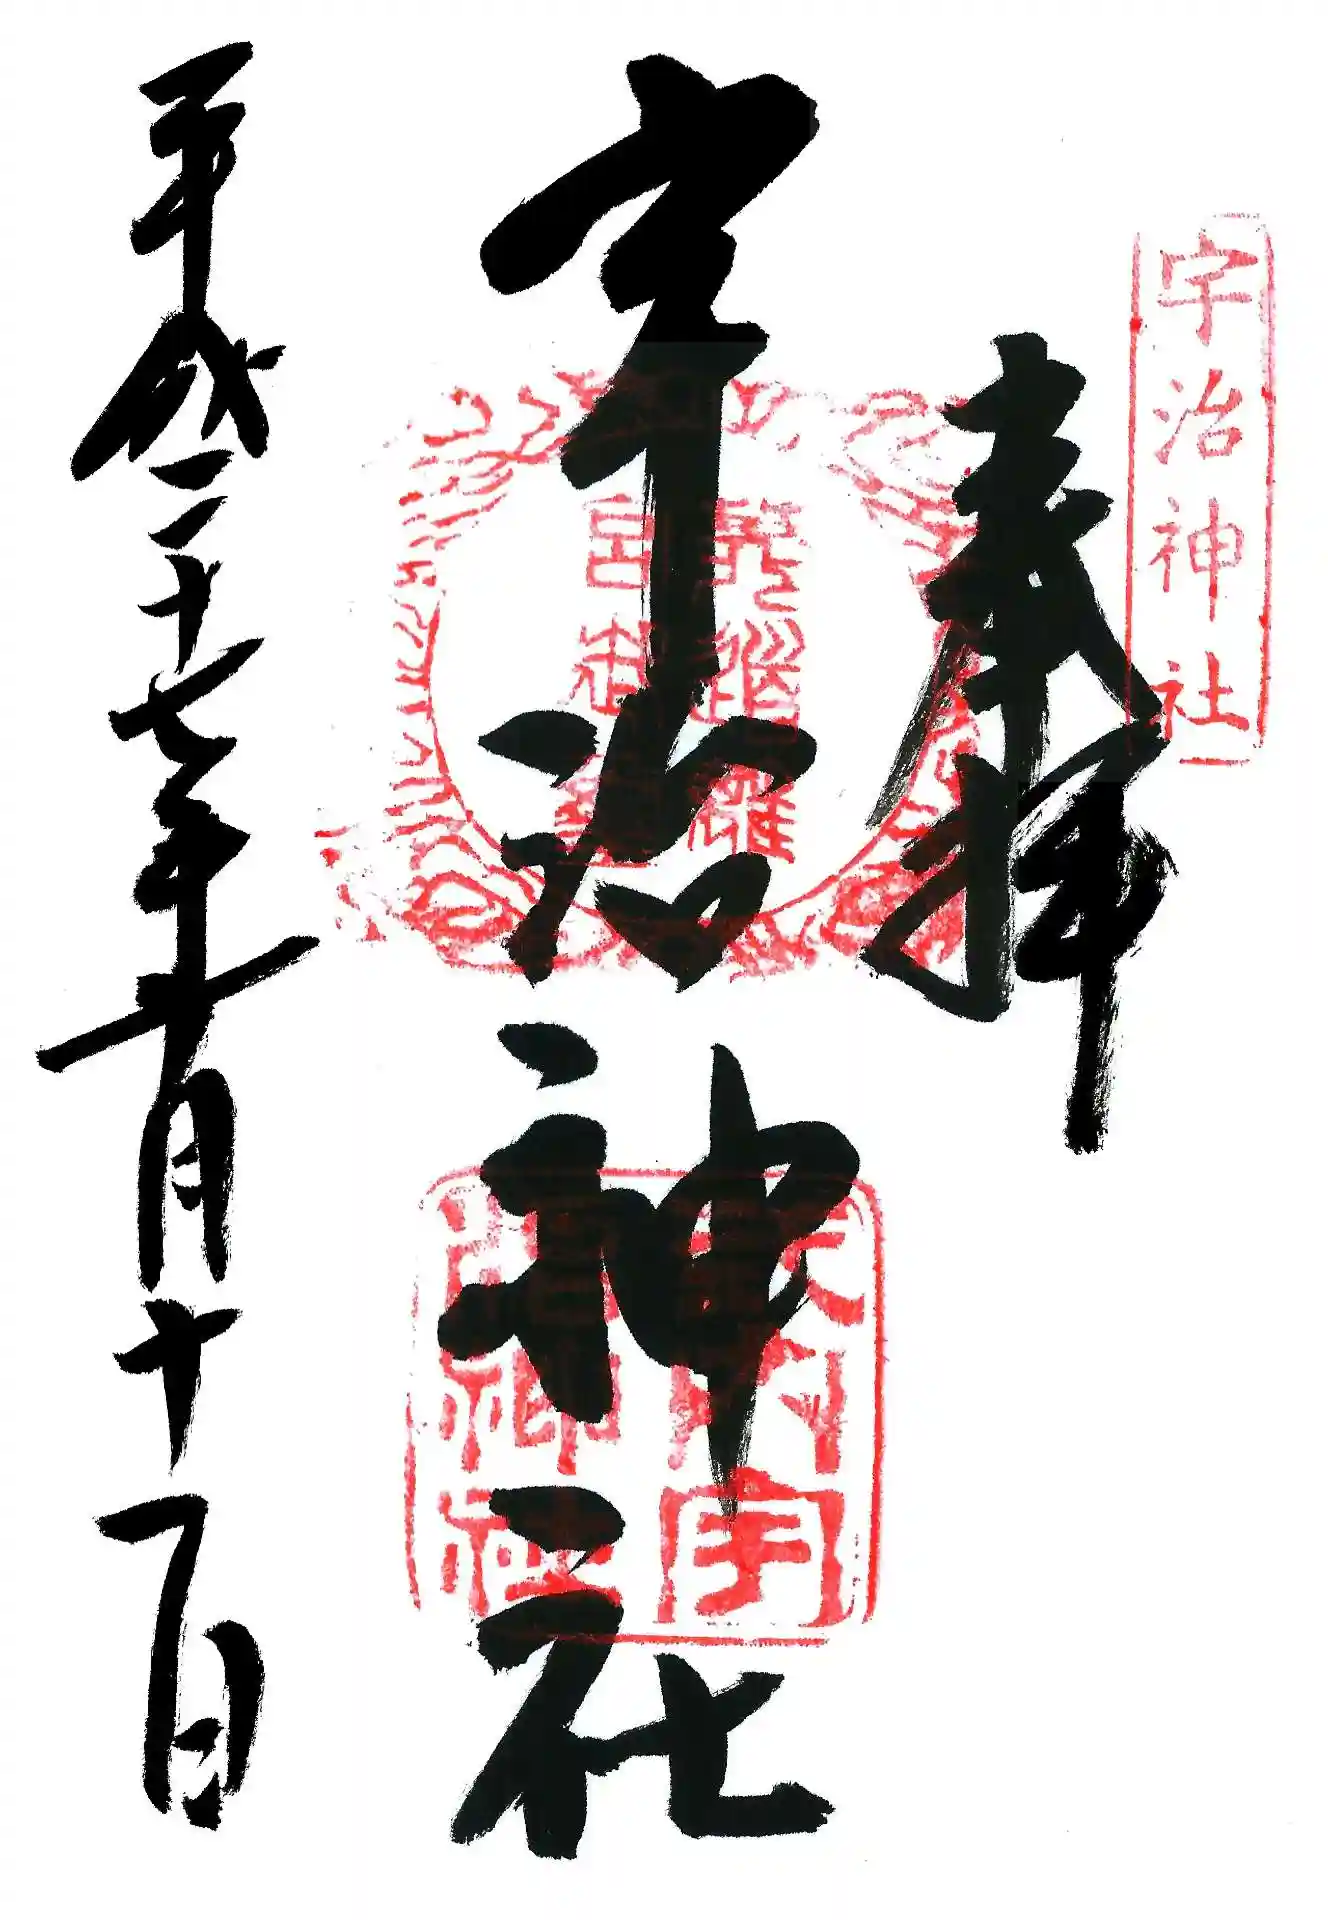 宇治神社
奉拝
宇治神社
平成二十七年十月十一日